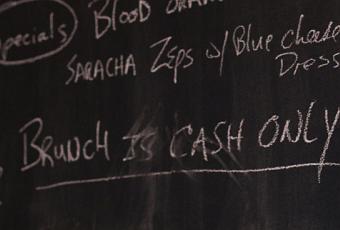 specials BLOOD ORAN
SARACHA ZEPS w/ Blue cheese
DRESS
BRUNCH IS CASH ONLY